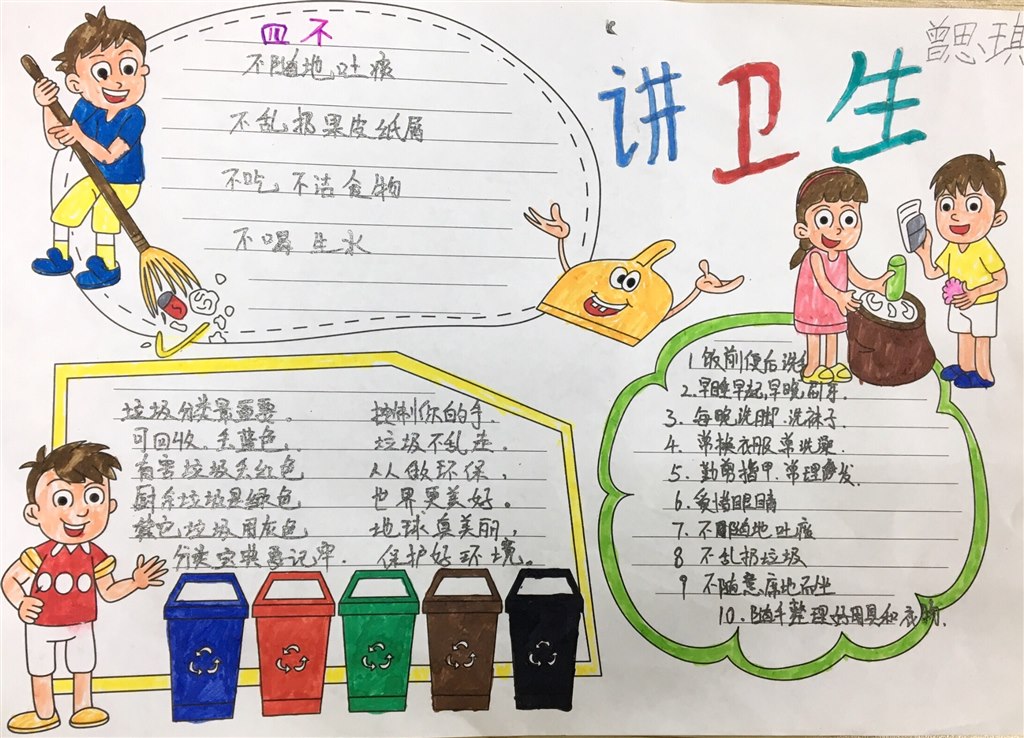 曾思琪
讲卫生
四不
不随地吐痰
不乱扔果皮纸屑
不吃不洁食物
不喝生水
垃圾分类最重要,
可回收、丢蓝色,
有害垃圾丢红色
厨余垃圾是绿色
其它垃圾用灰色
分类宝典要记牢.
控制你的手.
垃圾不乱走.
人人做环保,
世界更美好。
地球真美丽,
保护好环境。
1.饭前便后洗
2.早睡早起,早晚刷牙.
3.每晚洗脚.洗袜子.
4.常换衣服常洗澡.
5.勤剪指甲.常理发.
6.爱惜眼睛
7.不随地吐痰
8 不乱扔垃圾
9 不随意席地而坐
10.随手整理好用具和衣物.